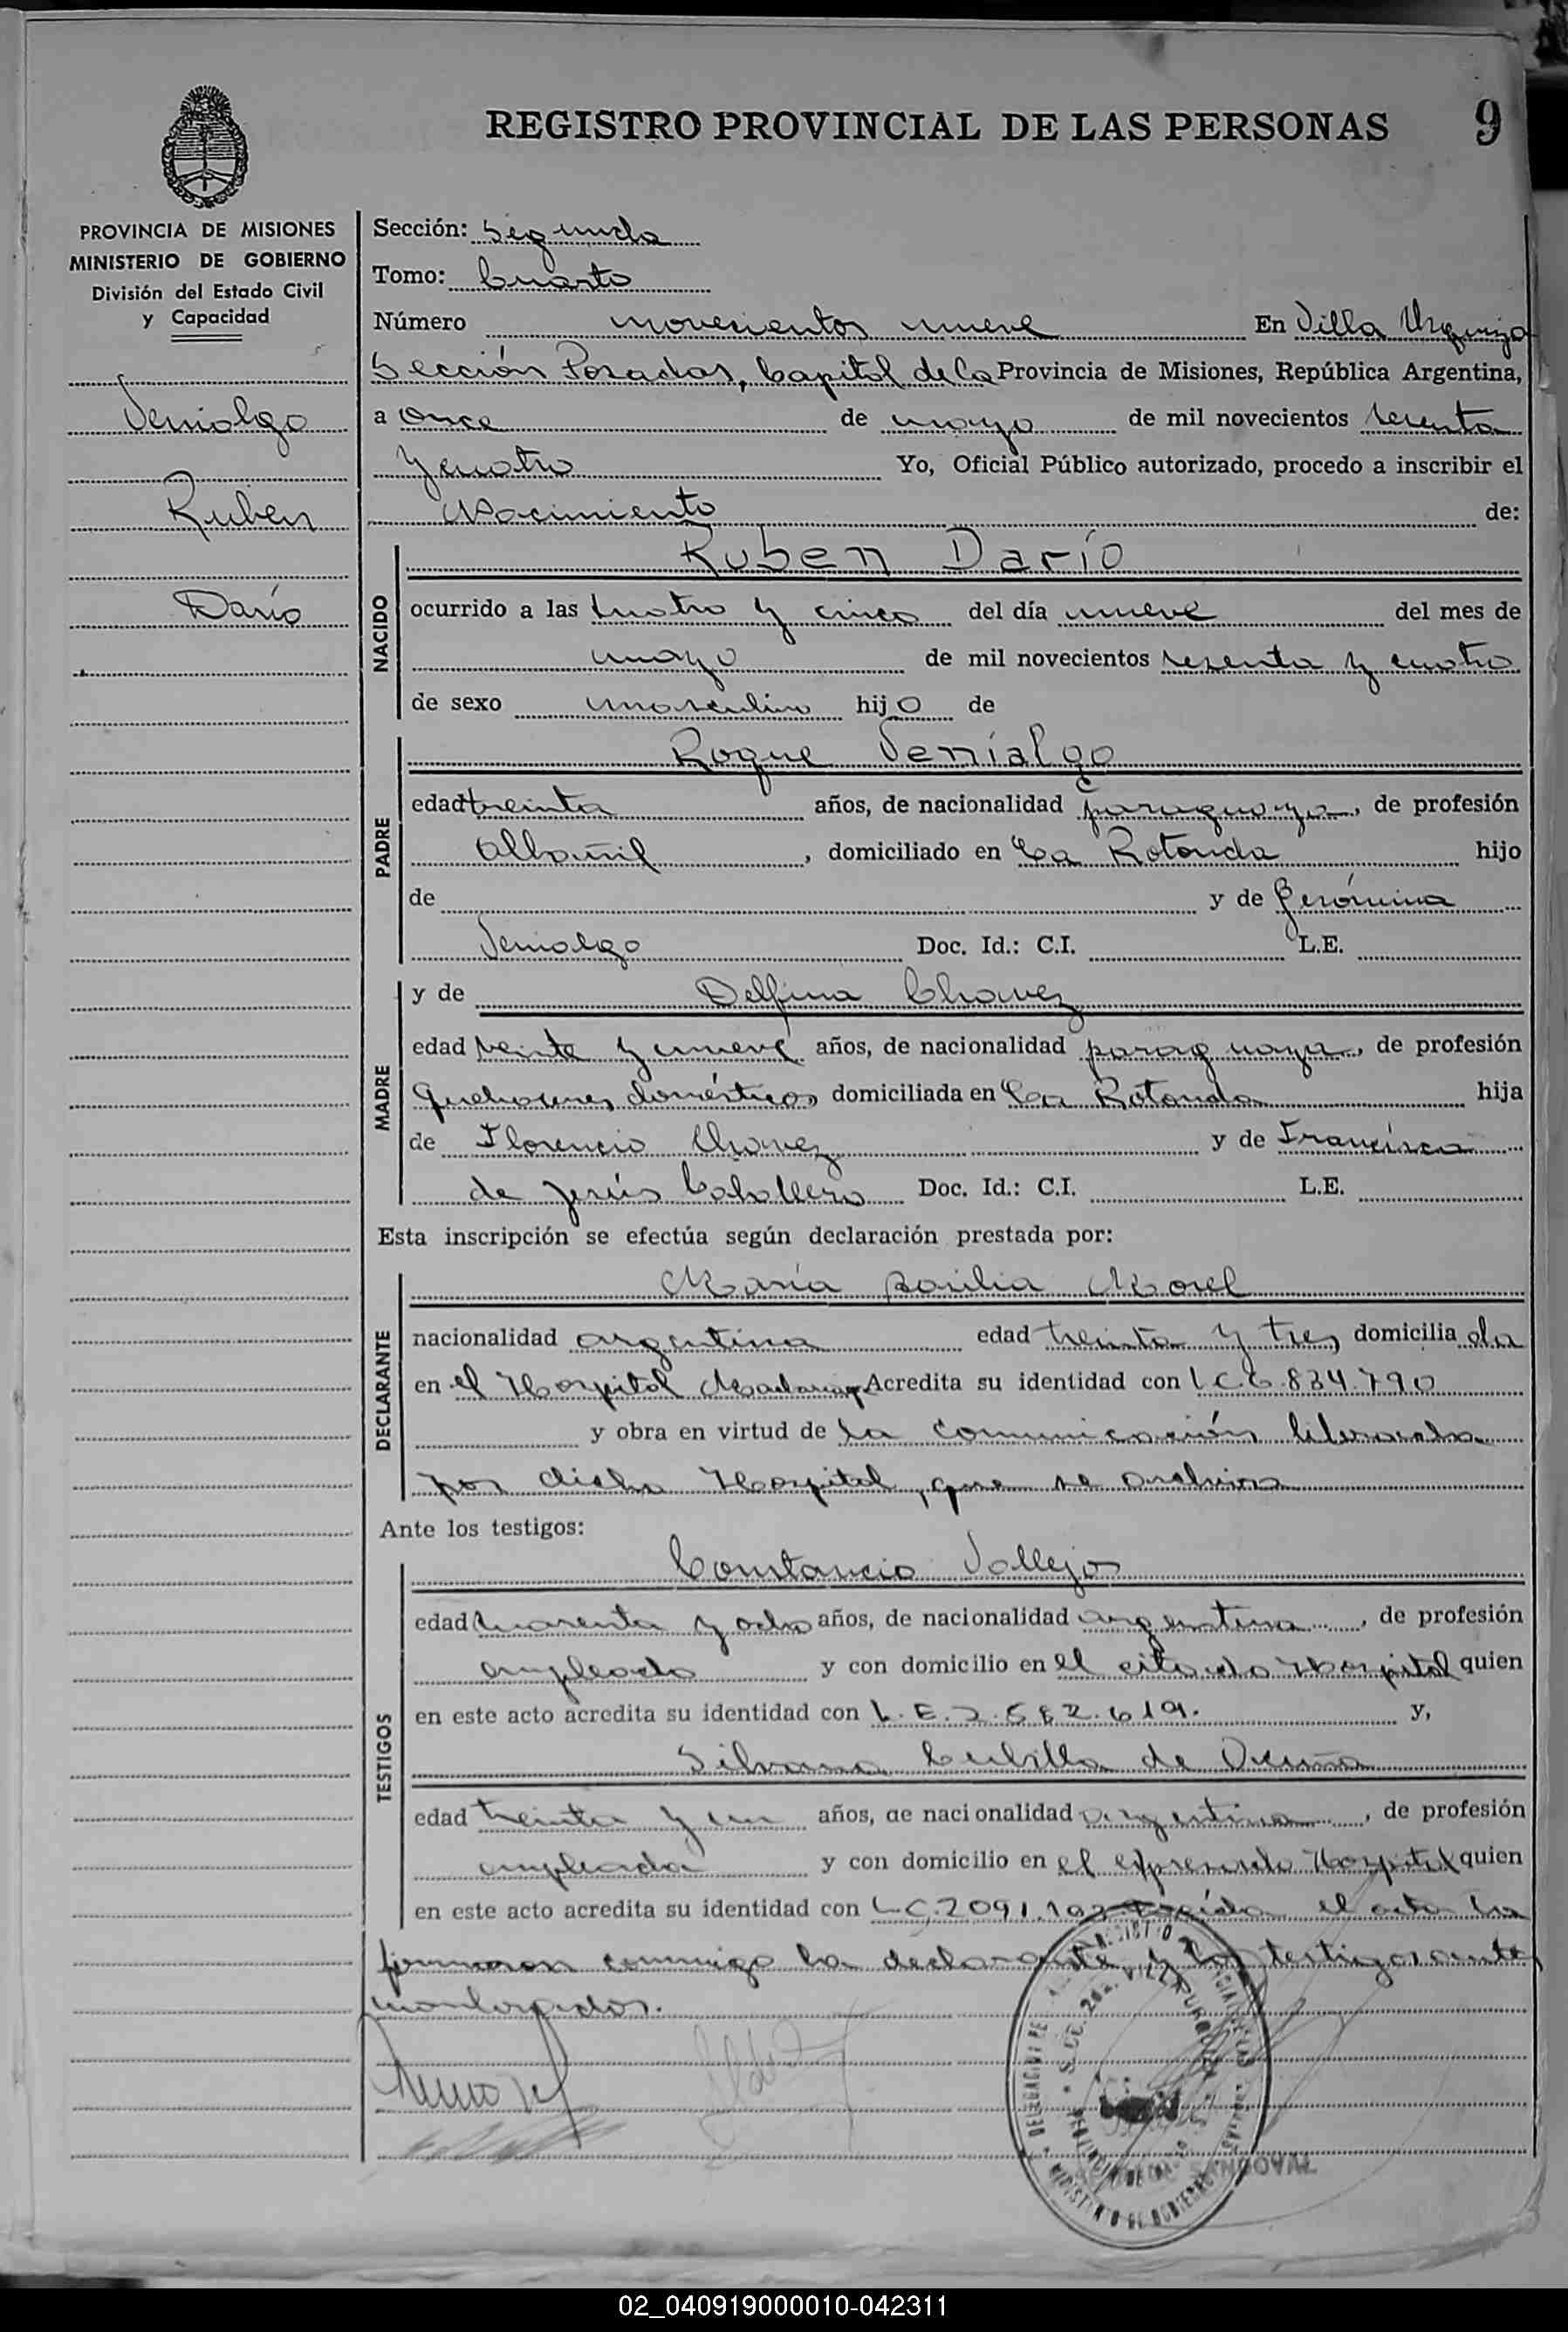 REGISTRO PROVINCIAL DE LAS PERSONAS 9
PROVINCIA DE MISIONES
MINISTERIO DE GOBIERNO
División del Estado Civil
y Capacidad
Venialgo
Ruben
Darío
Sección: Segunda
Tomo: Cuarto
Número novecientos nueve En Villa Urquiza
Sección Posadas, Capital de la Provincia de Misiones, República Argentina,
a once de mayo de mil novecientos sesenta
y cuatro Yo, Oficial Público autorizado, procedo a inscribir el
Nacimiento de:
NACIDO
Ruben Darío
ocurrido a las cuatro y cinco del día nueve del mes de
mayo de mil novecientos sesenta y cuatro
de sexo masculino hijo de
PADRE
Roque Venialgo
edad treinta años, de nacionalidad paraguaya, de profesión
albañil, domiciliado en La Rotonda hijo
de y de Gerónima
Venialgo Doc. Id.: C.I. L.E.
MADRE
y de Delfina Chavez
edad veinte y nueve años, de nacionalidad paraguaya, de profesión
quehaceres domésticos domiciliada en La Rotonda hija
de Florencio Chavez y de Francisca
de Jesús Caballero Doc. Id.: C.I. L.E.
Esta inscripción se efectúa según declaración prestada por:
DECLARANTE
María Basilia Morel
nacionalidad argentina edad treinta y tres domiciliada
en el Hospital Madariaga Acredita su identidad con L.C. 6.834.790
y obra en virtud de la comunicación liberada
por dicho Hospital, que se archiva
Ante los testigos:
TESTIGOS
Constancio Vallejos
edad cuarenta y ocho años, de nacionalidad argentina, de profesión
empleado y con domicilio en el citado Hospital quien
en este acto acredita su identidad con L.E. 2.582.619. y,
Silvana Cubilla de Acuña
edad treinta y un años, de nacionalidad argentina, de profesión
empleada y con domicilio en el expresado Hospital quien
en este acto acredita su identidad con L.C. 2091.102 Leída el acta la
firmaron conmigo la declarante y los testigos ante
mencionados.
SANDOVAL
02_040919000010-042311